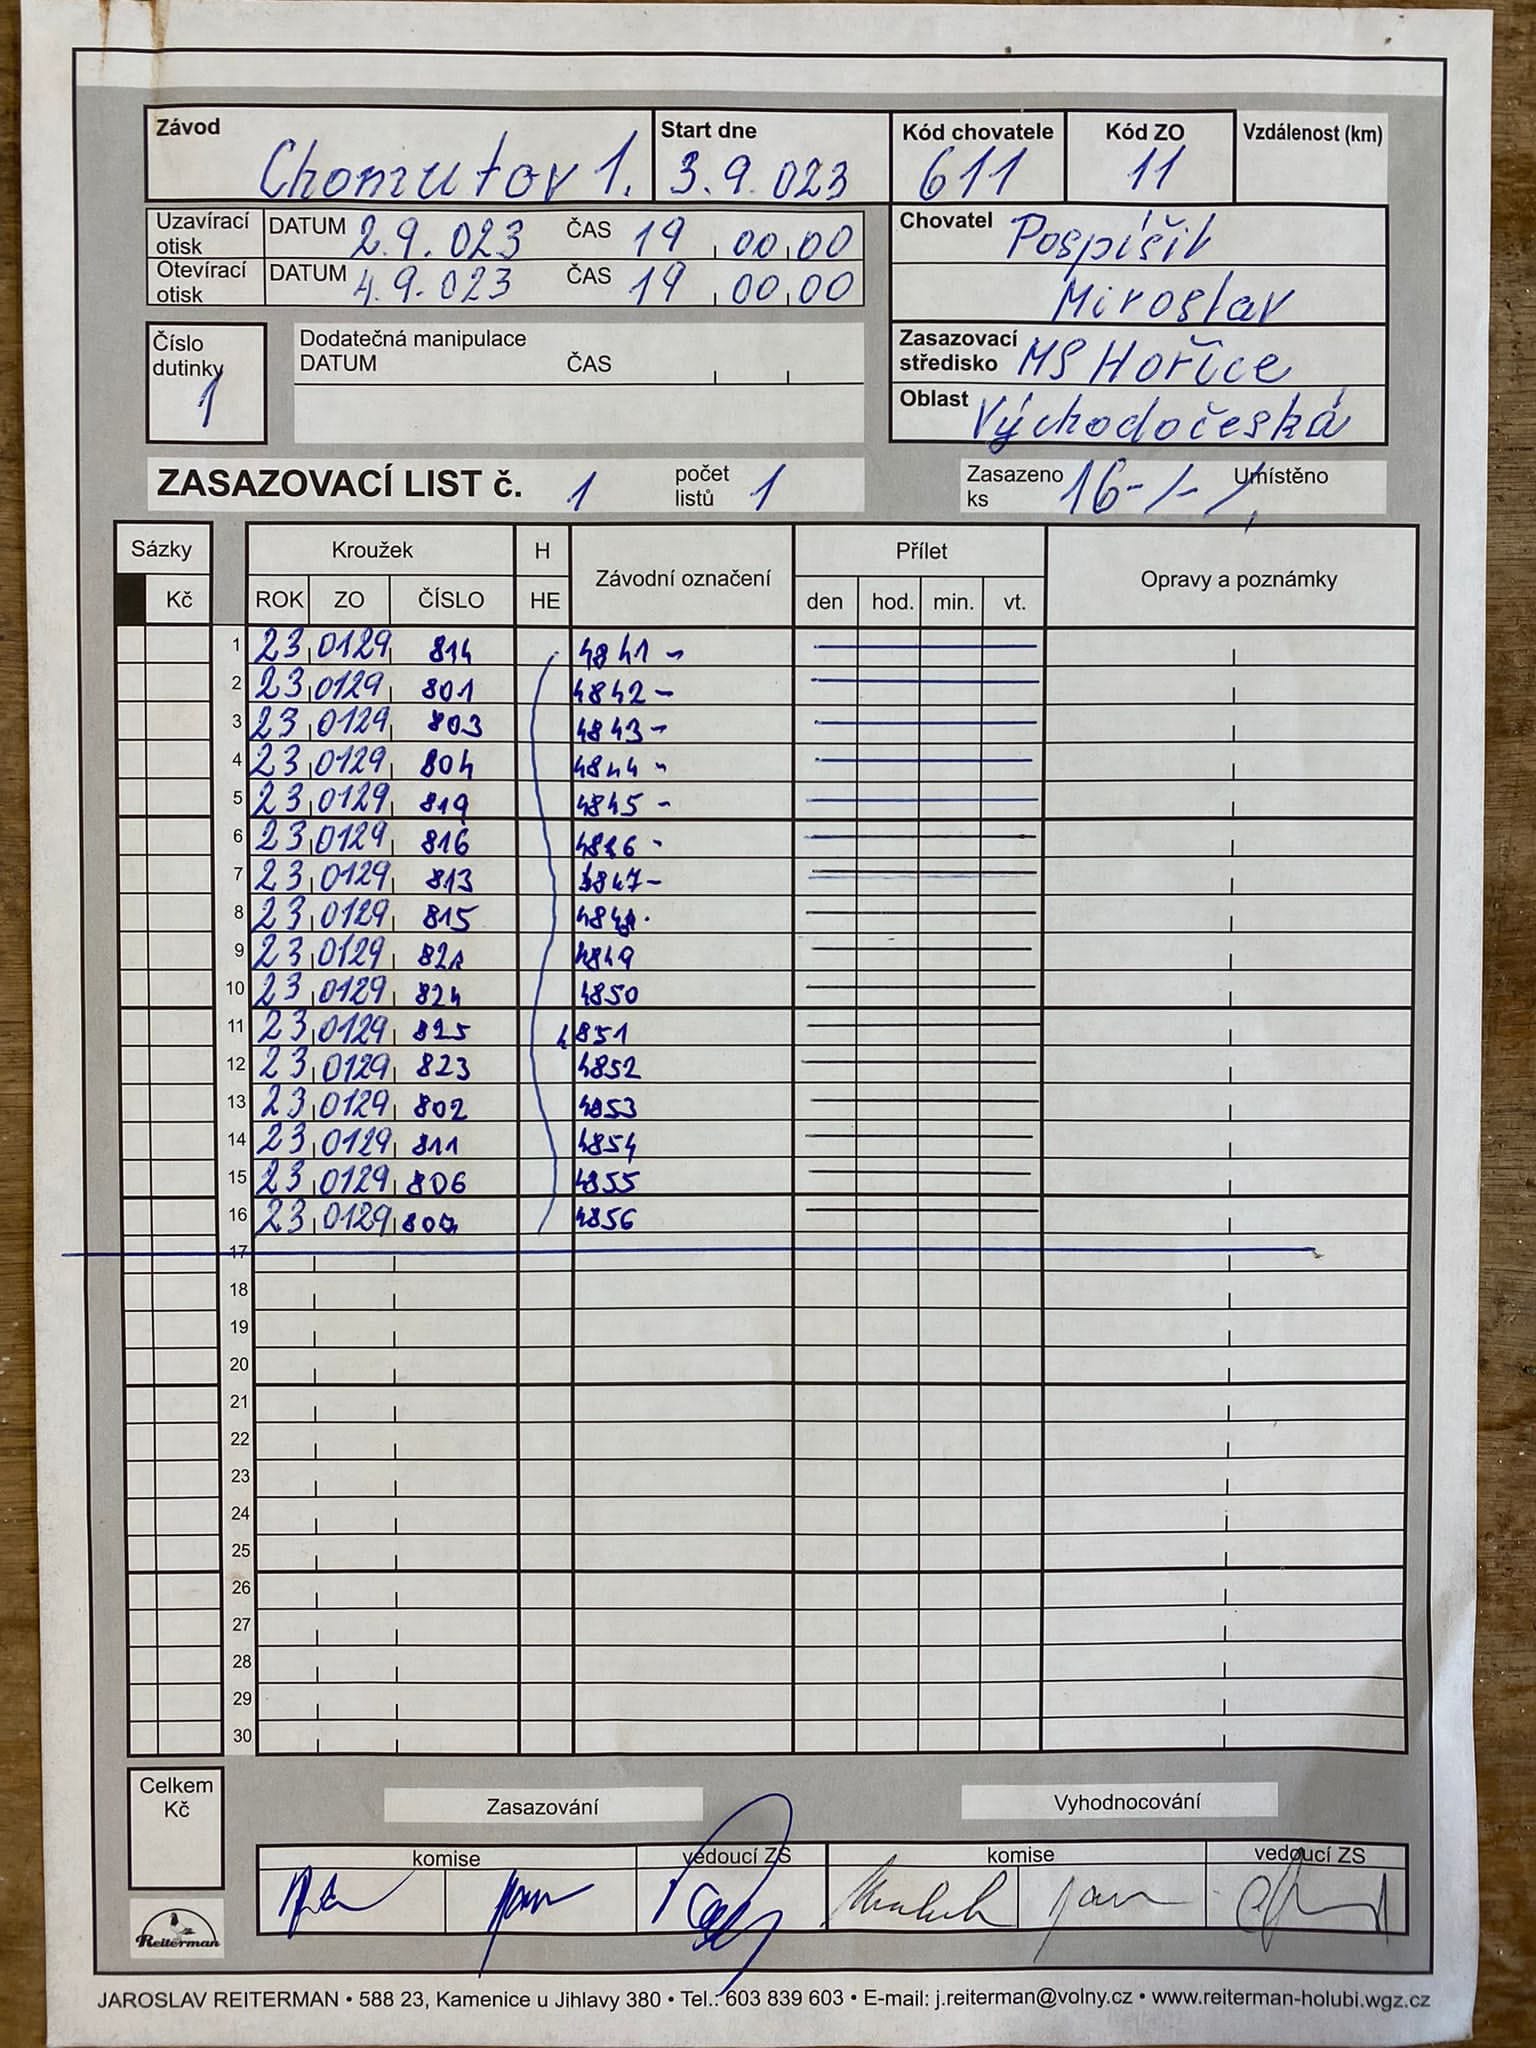 Závod Start dne Kód chovatele Kód ZO Vzdálenost (km)
Chomutov 1. 3.9.023 611 11
Uzavírací otisk DATUM 2.9.023 ČAS 19 00 00
Otevírací otisk DATUM 4.9.023 ČAS 19 00 00
Chovatel Pospíšil
Miroslav
Zasazovací středisko MS Hořice
Oblast Východočeská
Číslo dutinky 1
Dodatečná manipulace
DATUM ČAS
ZASAZOVACÍ LIST č. 1 počet listů 1 Zasazeno ks 16-/-/, Umístěno
Sázky Kroužek H Závodní označení Přílet Opravy a poznámky
Kč ROK ZO ČÍSLO HE den hod. min. vt.
1 23 0129 814 4841 -
2 23 0129 801 4842 -
3 23 0129 803 4843 -
4 23 0129 804 4844 -
5 23 0129 819 4845 -
6 23 0129 816 4846 -
7 23 0129 813 4847 -
8 23 0129 815 4848
9 23 0129 4849
10 23 0129 824 4850
11 23 0129 825 4851
12 23 0129 823 4852
13 23 0129 802 4853
14 23 0129 811 4854
15 23 0129 806 4855
16 23 0129 4856
17
18
19
20
21
22
23
24
25
26
27
28
29
30
Celkem
Kč
Zasazování Vyhodnocování
komise vedoucí ZS komise vedoucí ZS
Reiterman
JAROSLAV REITERMAN • 588 23, Kamenice u Jihlavy 380 • Tel.: 603 839 603 • E-mail: j.reiterman@volny.cz • www.reiterman-holubi.wgz.cz